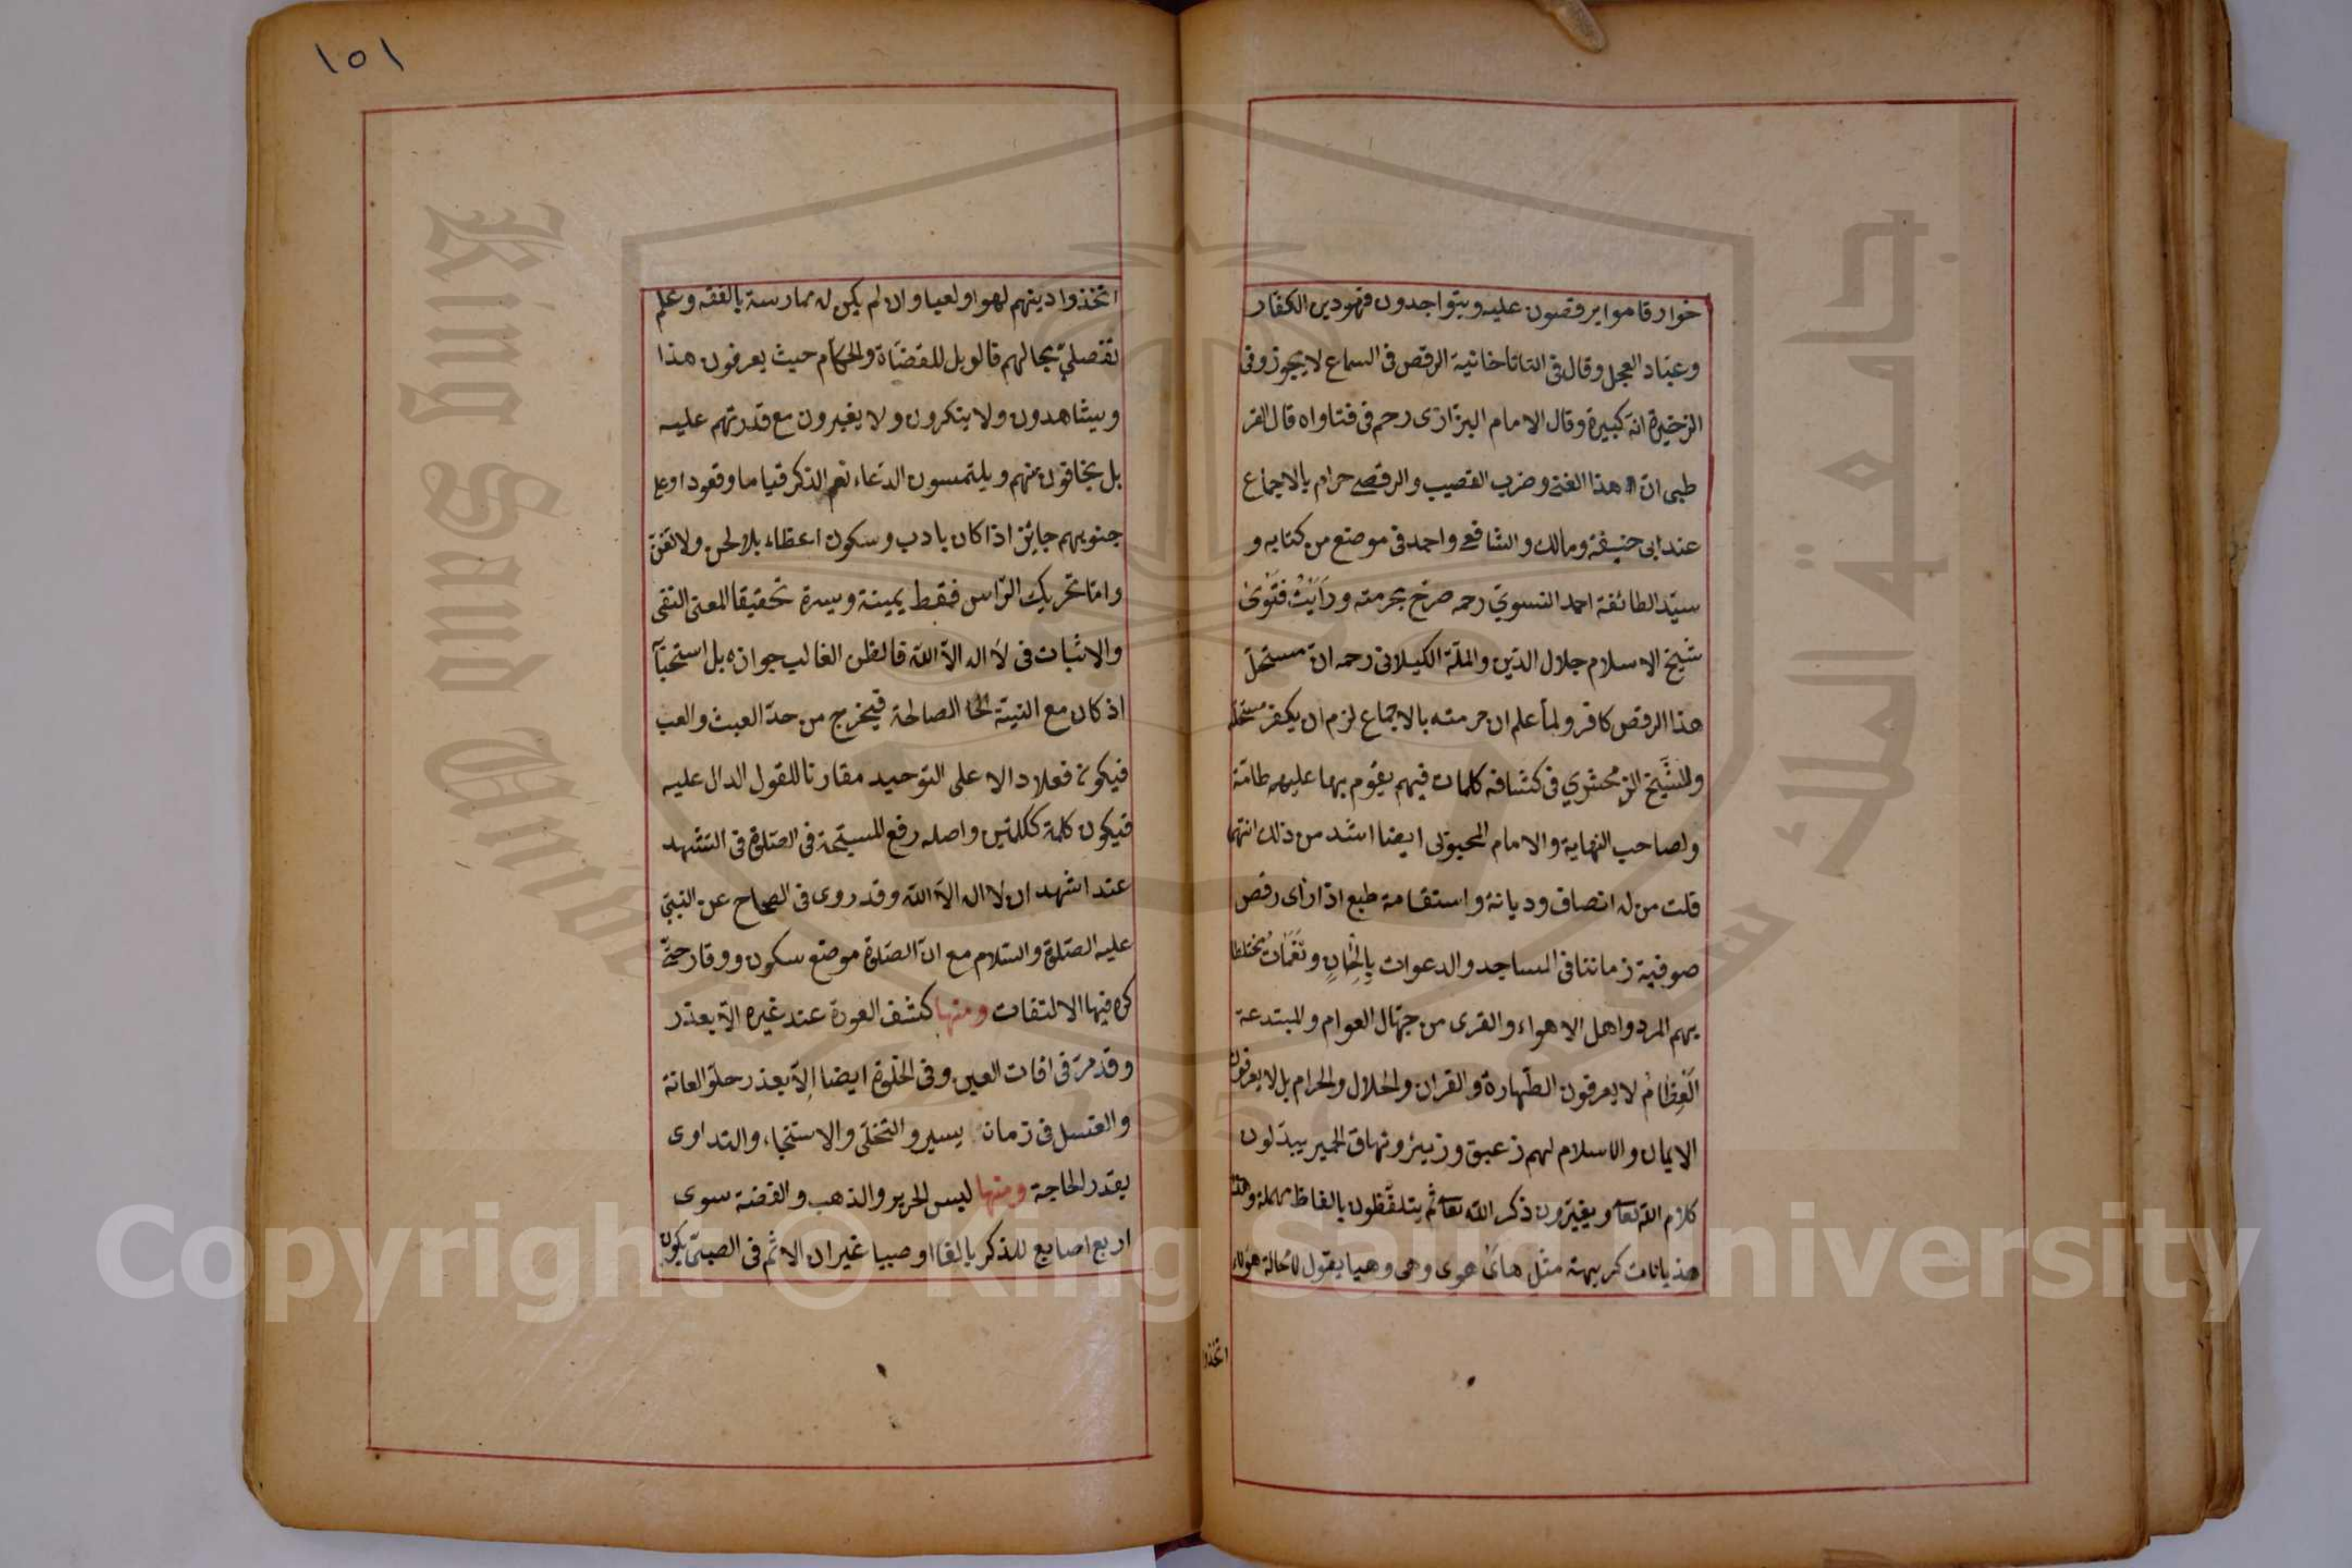 خوار قاموا يرقصون عليه ويتواجدون فهو دين الكفار
وعباد العجل وقال فى التاتاخانية الرقص فى السماع لا يجوز وفى
الذخيرة انه كبيرة وقال الامام البزازى رحم فى فتاواه قال القر
طبى ان هذا الغنى وضرب القصيب والرقص حرام بالاجماع
عند ابى حنيفة ومالك والشافعى واحمد فى موضع من كتابه و
سيد الطائفة احمد النسوى رحمه صرح بحرمته ورأيت فتوى
شيخ الاسلام جلال الدين والملة الكيلانى رحمه ان مستحل
هذا الرقص كافر ولما علم ان حرمته بالاجماع لزم ان يكفر مستحله
وللشيخ الزمحشري فى كشافه كلمات فيهم يقوم بها عليهم طامة
ولصاحب النهاية والامام المحبوبى ايضا اشد من ذلك انتهى
قلت من له انصاف وديانة واستقامة طبع اذا رأى رقص
صوفية زماننا فى المساجد والدعوات بالحان ونغمات مختلطا
بهم المرد واهل الاهواء والقرى من جهال العوام والمبتدعة
الغطام لا يعرفون الطهارة والقران والحلال والحرام بل لا يعرفون
الايمان والاسلام لهم زعيق وزئير ونهاق الحمير يبدلون
كلام الله تعا ويغيرون ذكر الله تعا ثم يتلفظون بالفاظ مهملة وهذه
هذيانات كريهة مثل هاى هوى وهى وهيا يقول لا محالة هؤلاء
اتخذوا
١٥١
اتخذوا دينهم لهوا ولعبا وان لم يكن له ممارسة بالفقه وعلم
تفصلي بحالهم فالويل للقضاة والحكام حيث يعرفون هذا
ويشاهدون ولا ينكرون ولا يغيرون مع قدرتهم عليه
بل يخافون منهم ويلتمسون الدعاء نعم الذكر قياما وقعودا وعلى
جنوبهم جايز اذا كان بادب وسكون اعظاء بلا لحن ولا تغن
واما تحريك الراس فقط يمينة ويسرة تحقيقا لمعنى النفى
والاثبات فى لا اله الا الله فالظن الغالب جوازه بل استحبا
اذ كان مع النية الصالحة فيخرج من حد العبث والعب
فيكون فعلا دالا على التوحيد مقارنا للقول الدال عليه
فيكون كلمة ككلمتين واصله رفع المسبحة فى الصلوة فى التشهد
عند اشهد ان لا اله الا الله وقد روى فى الصحاح عن النبى
عليه الصلوة والسلام مع ان الصلوة موضع سكون ووقار حتى
كره فيها الالتفات ومنها كشف العورة عند غيره الا بعذر
وقد مر فى افات العين وفى الخلوة ايضا الا بعذر حلق العانة
والغسل فى زمان يسير والتخلى والاستنجاء والتداوى
بقدر الحاجة ومنها لبس الحرير والذهب والفضة سوى
اربع اصابع للذكر بالغا او صبيا غير ان الاثم فى الصبى يكون
King Saud University
جامعة الملك سعود
1957
Copyright © King Saud University